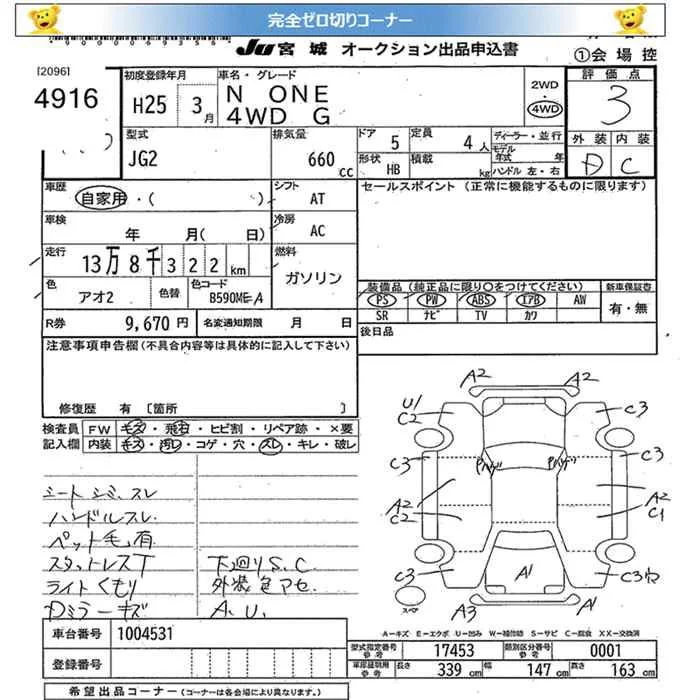 完全ゼロ切りコーナー
JU 宮城 オークション出品申込書
①会場控
[2096]
4916
初度登録年月
H25 3月
車名・グレード
N ONE
4WD G
2WD
4WD
評価点
3
外装 内装
D C
型式
JG2
排気量
660 cc
ドア 5
定員 4人
形状 HB
積載 kg
ディーラー・並行
モデル年式 年
ハンドル 左・右
車歴
自家用・(
シフト
AT
セールスポイント (正常に機能するものに限ります)
車検
年 月( 日)
冷房
AC
走行
13万8千322km
燃料
ガソリン
色
アオ2
色替
色コード
B590ME-A
装備品 (純正品に限り○をつけてください)
PS PW ABS エアB AW
SR ナビ TV カワ
新車保証書
有・無
R券 9,670円
名変通知期限 月 日
後日品
注意事項申告欄 (不具合内容等は具体的に記入して下さい)
修復歴 有 [箇所 ]
検査員記入欄
FW キズ・飛石・ヒビ割・リペア跡・×要
内装 キズ・汚レ・コゲ・穴・スレ・キレ・破レ
シートシミ、スレ
ハンドルスレ
ペット毛有
スタットレスT
ライトくもり
Dミラーキズ
下廻りS.C
外装色アセ
A.U.
A2 A2
U1
C2
C3
C3
C3
A2
C2
A2
C1
C3
C3ワ
A1
A3
A1
スペア
A－キズ E－エクボ U－凹み W－補修跡 S－サビ C－腐食 XX－交換済
車台番号 1004531
登録番号
型式指定番号 参考 17453
類別区分番号 参考 0001
車庫証明用 参考
長さ 339 cm
幅 147 cm
高さ 163 cm
希望出品コーナー (コーナーは各会場により異なります。)